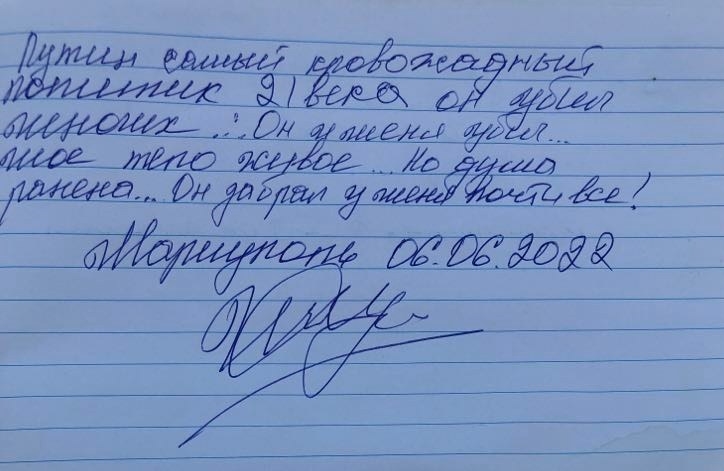 Путин самый кровожадный
политик 21 века он убил
многих ... Он у меня убил...
мое тело живое... Но душа
ранена... Он забрал у меня почти все!
Мариуполь 06.06.2022